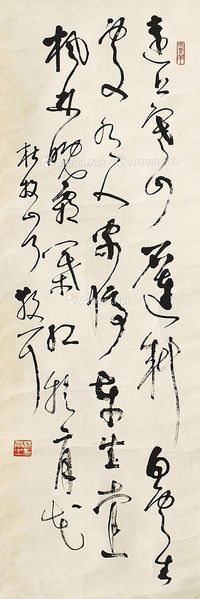 远上寒山石迳斜白云生
处有人家停车坐爱
枫林晚霜叶红于二月花
杜牧山行
Artron.Net
Artron.Net